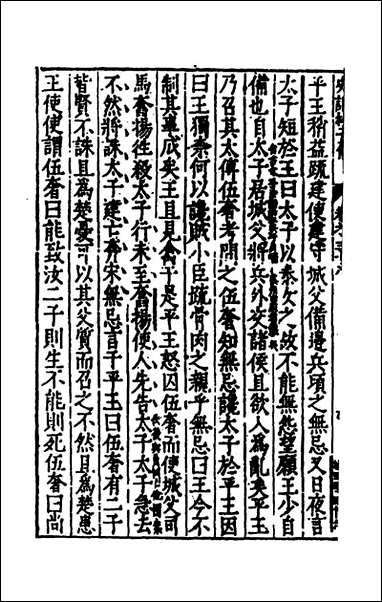 平王稍益疏建使建守城父備邊兵頃之無忌又日夜言
太子短於王曰太子以秦女之故不能無怨望願王少自
備也自太子居城父將兵外交諸侯且欲入爲亂矣平王
乃召其太傅伍奢考問之伍奢知無忌讒太子於平王因
曰王獨柰何以讒賊小臣疏骨肉之親乎無忌曰王今不
制其事成矣王且見禽于是平王怒囚伍奢而使城父司
馬奮揚往殺太子行未至奮揚使人先告太子太子急去
不然將誅太子建亡奔宋無忌言于平王曰伍奢有二子
皆賢不誅且爲楚憂可以其父質而召之不然且爲楚患
王使使謂伍奢曰能致汝二子則生不能則死伍奢曰尚